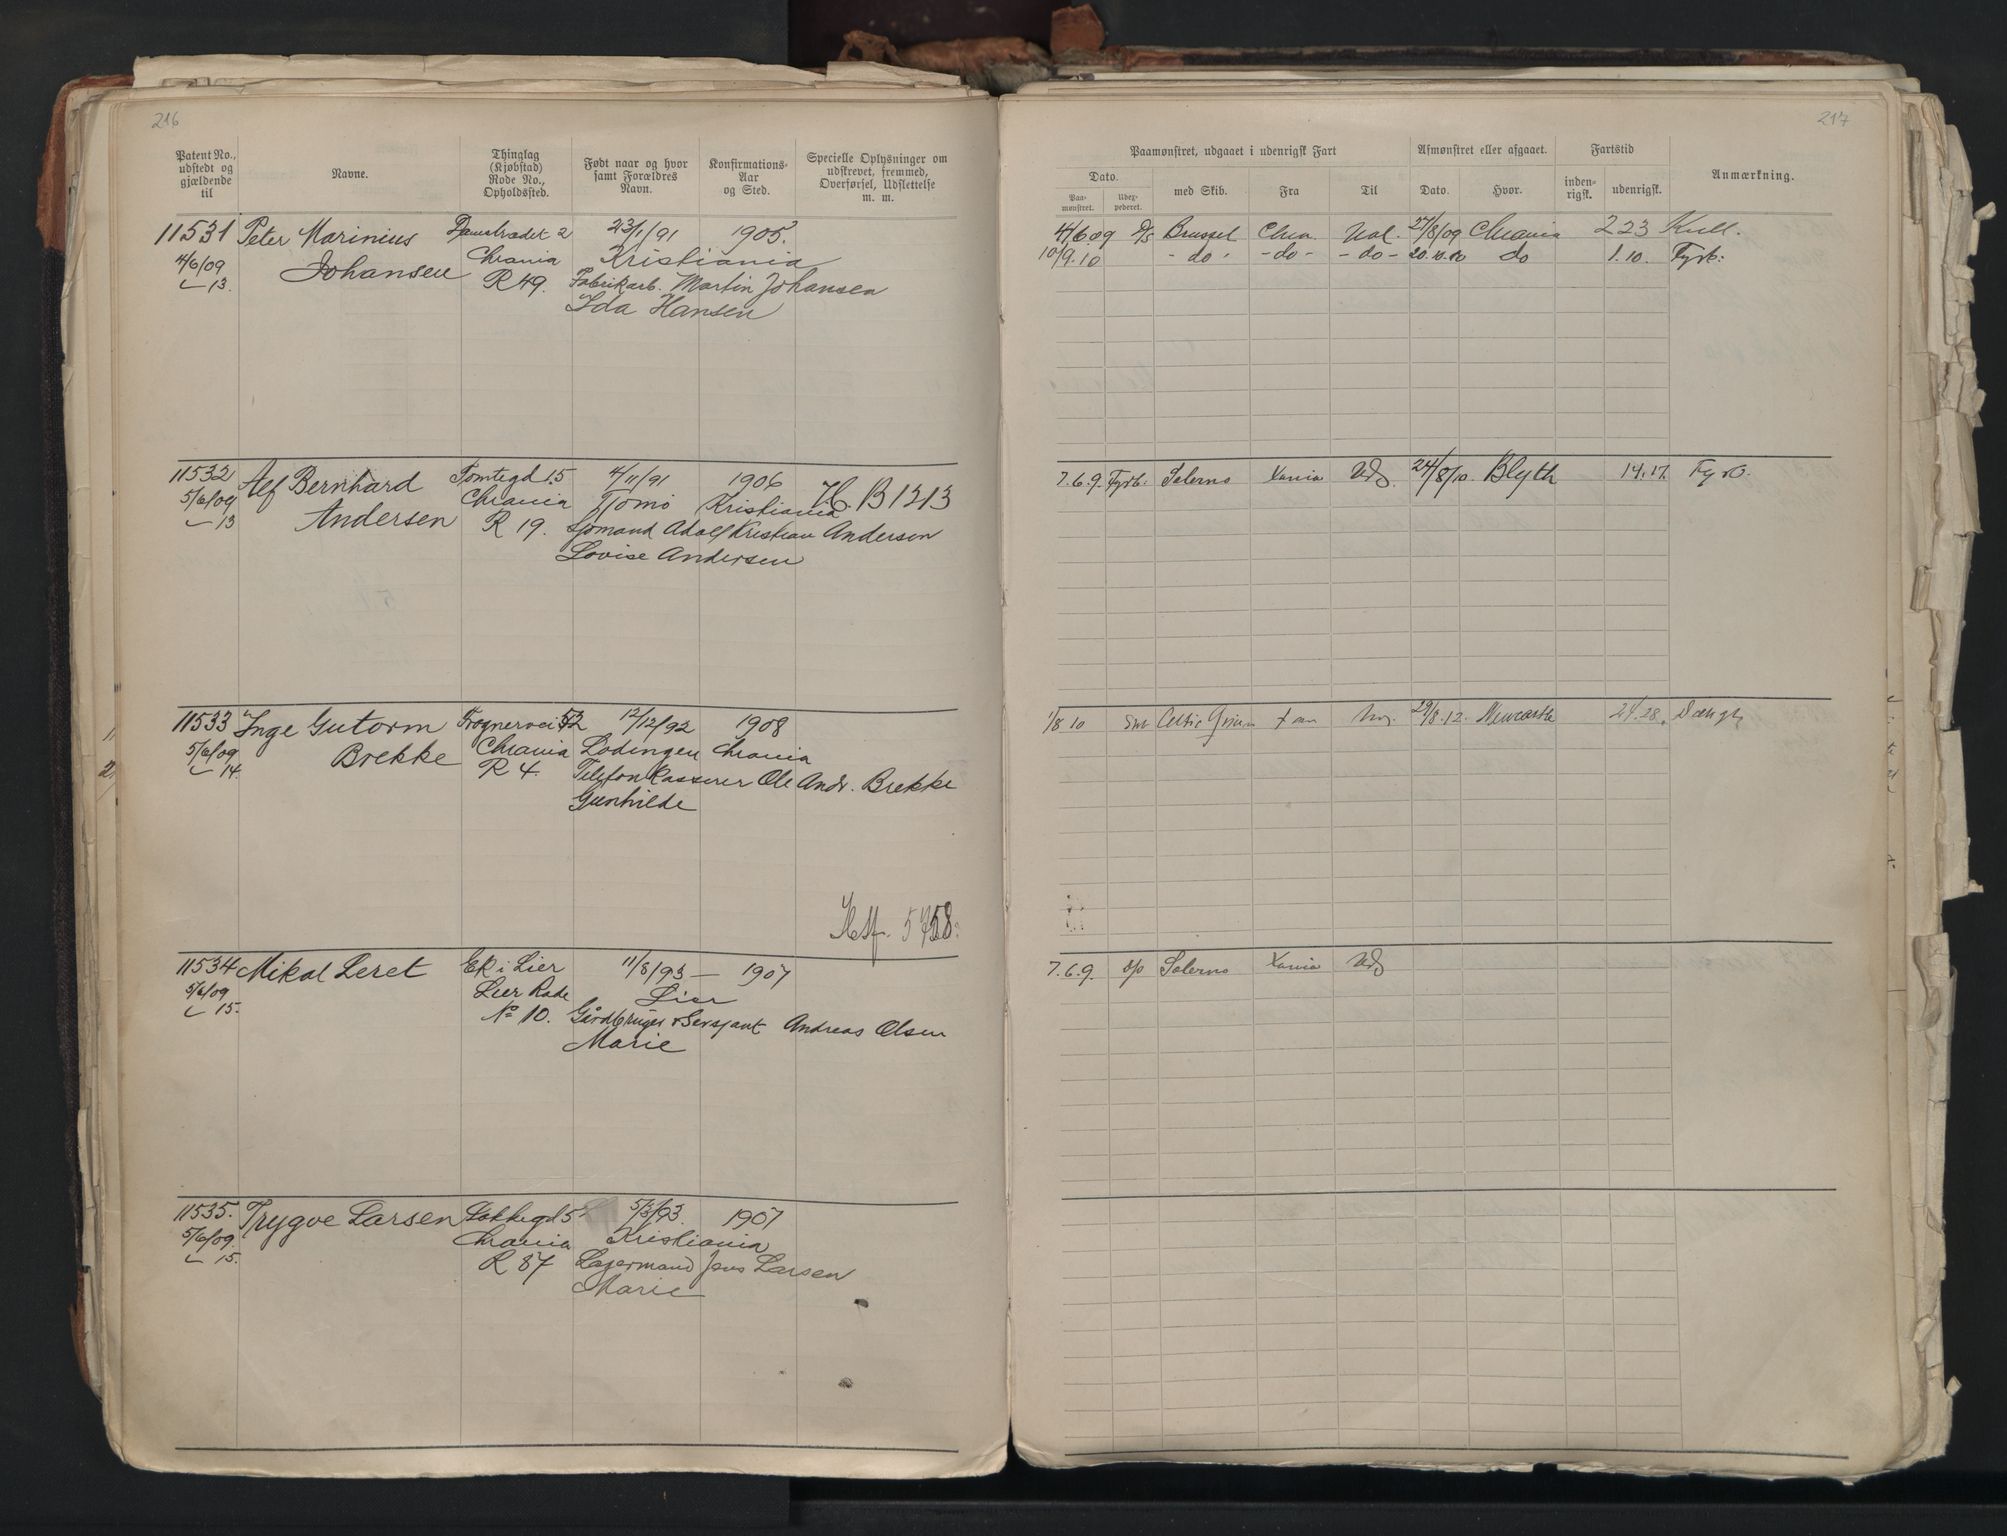 216
Patent No., udstedt og gjældende til
Navne.
Thinglag (Kjøbstad) Rode No., Opholdssted.
Født naar og hvor samt Forældres Navn.
Konfirmations-Aar og Sted.
Specielle Oplysninger om udskrevet, fremmed, Overførsel, Udslettelse m. m.
11531 Peter Marinius 2 23/1/91 1905.
4/6/09 Johansen Chrania Kristiania
13. R 49. Fabrikarb. Martin Johansen
Ida Hansen
11532 Alf Bernhard Tomtegd 15 4/11/91 1906
5/6/09 Andersen Chrania Tjømø Kristiania B 1213
13 R 19. Sjømand Adolf Kristian Andersen
Lovise Andersen
11533 Inge Gutorm Frognervei 52 12/12/92 1908
5/6/09 Brekke Chrania Lødingen Chrania
14. R 4. Telefonkasserer Ole Andr. Brekke
Gunhilde
11534 Mikal Leret Ek i Lier 11/8/93 — 1907
5/6/09 Lier Rode Lier
15. No 10. Gårdbruger & Sersjant Andreas Olsen
Marie
11535. Trygve Larsen Løkkegd 5 5/3/93. 1907
5/6/09. Chrania Kristiania
15. R 87 Lagermand Jens Larsen
Marie
217
Paamønstret, udgaaet i udenrigsk Fart
Afmønstret eller afgaaet.
Fartstid
Anmærkning.
Dato.
Paa-mønstret.
Udex-pederet.
med Skib.
Fra
Til
Dato.
Hvor.
inden-rigsk.
udenrigsk.
4/6 09 D/S Brussel Chra. Udl. 27/8/09 Chrania 2 23 Kull.
10/9.10 - do - - do - - do - 20.10.10 do 1.10. Fyrb:
7.6.9. Fyrb: Salerno Xania Udl. 24/8/10. Blyth 14.17. Fyrb.
1/8 10 Celtic 29/8.12. Newcastle 24.28.
7.6.9. Salerno Xania Udl.